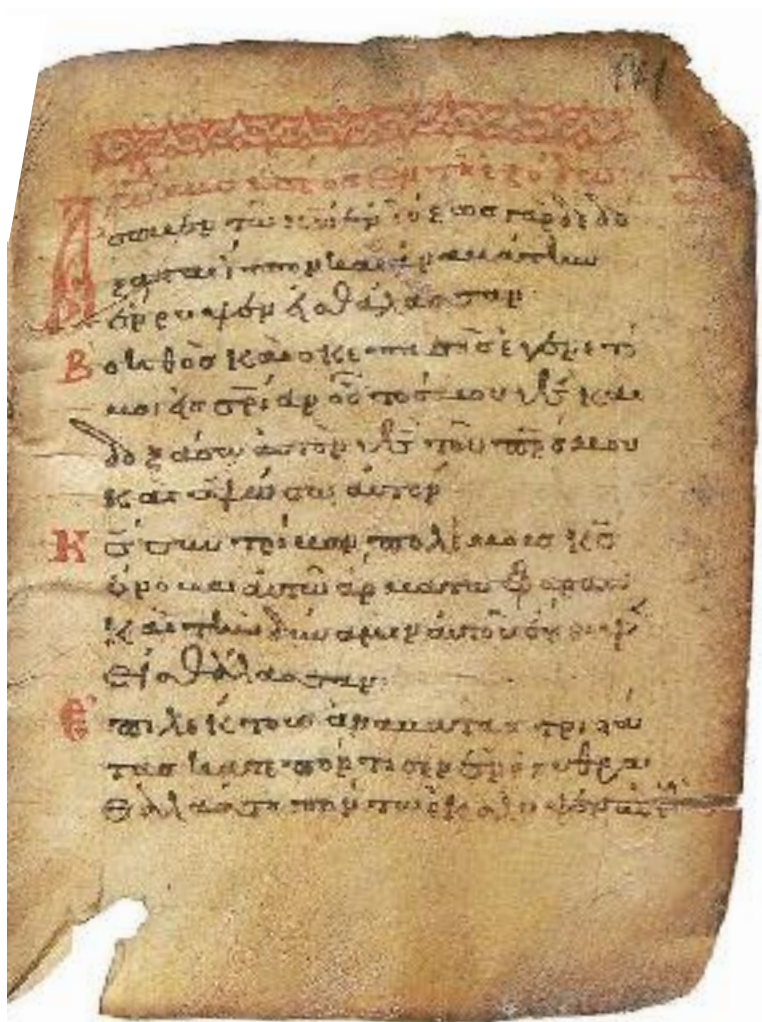 ᾠδὴ Μωσέως ἐν τῇ ἐξόδῳ
Ἄσωμεν τῷ κω ἐνδόξως γὰρ δεδό
ξασται ἵππον καὶ ἀναβάτην
ἔρριψεν εἰς θάλασσαν
Βοηθὸς καὶ σκεπαστὴς ἐγένετό
μοι εἰς σριαν οὗτός μου θς καὶ
δοξάσω αὐτὸν θς τοῦ πρς μου
καὶ ὑψώσω αὐτόν
Κς συντρίβων πολέμους κς
ὄνομα αὐτῷ ἅρματα Φαραὼ
καὶ τὴν δύναμιν αὐτοῦ ἔρριψεν
εἰς θάλασσαν
Ἐπιλέκτους ἀναβάτας τριστά
τας κατεπόντισεν ἐν ἐρυθρᾷ
θαλάσσῃ πόντῳ ἐκάλυψεν αὐτούς